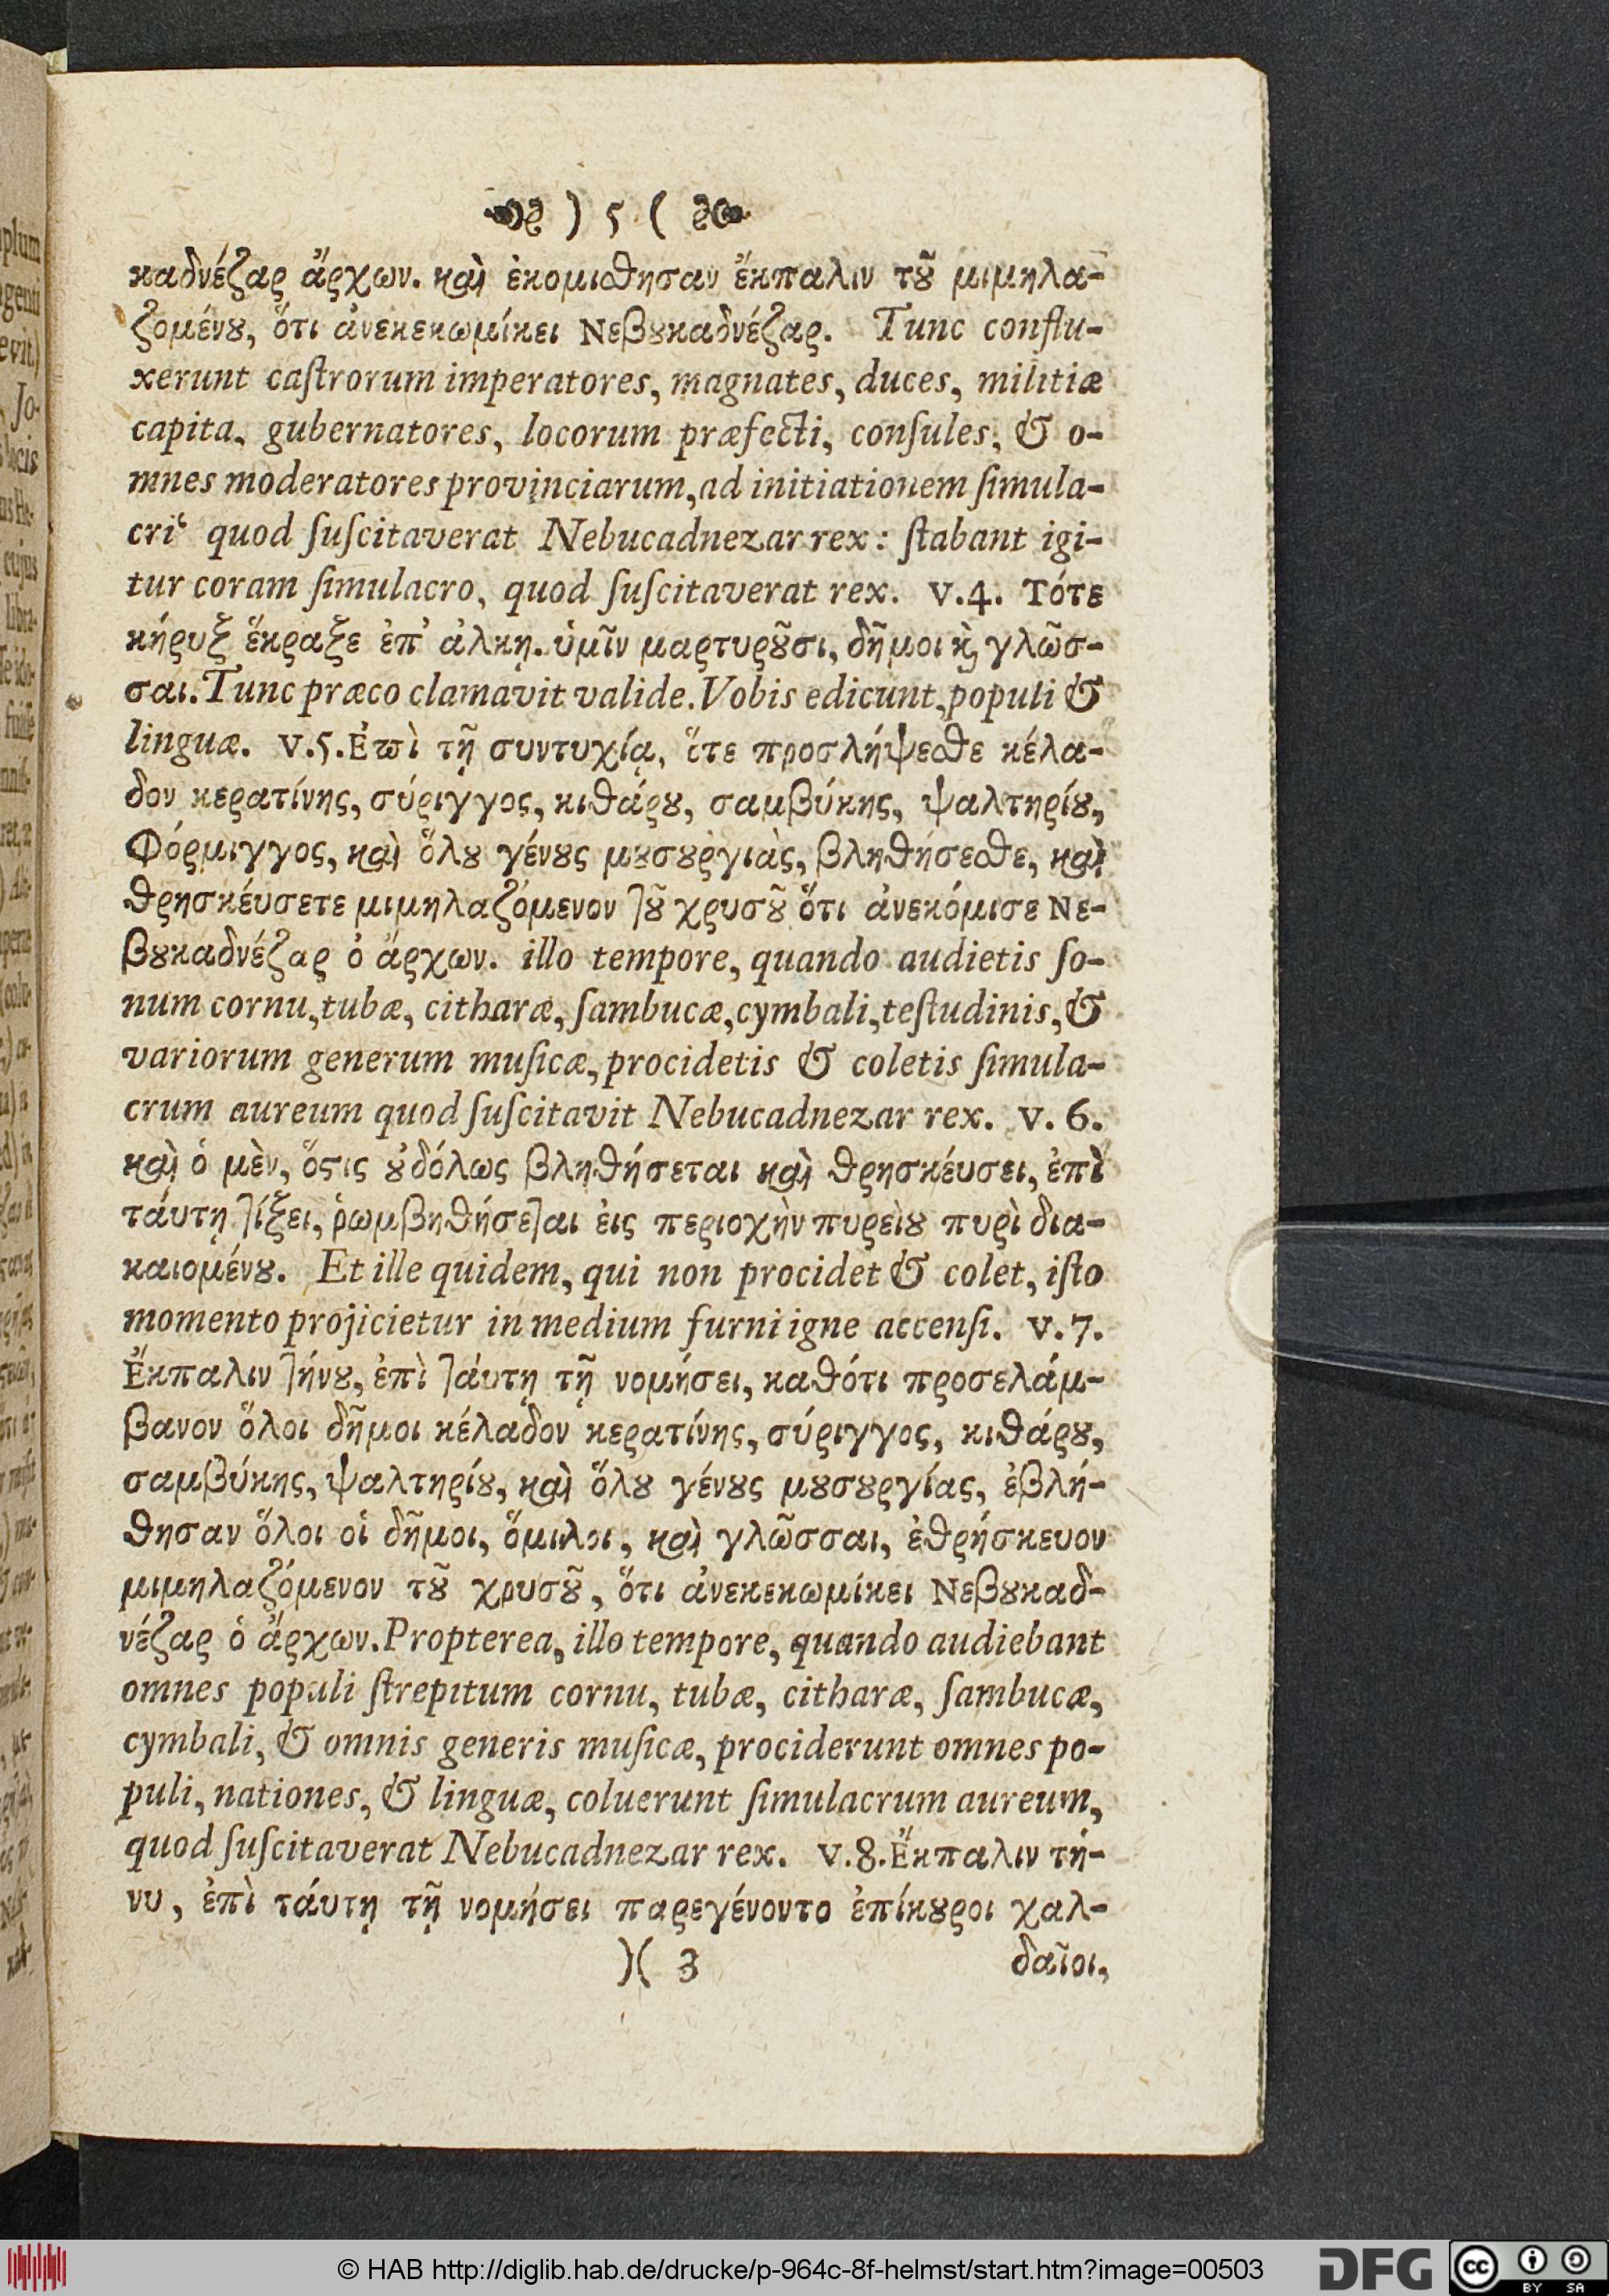 ) 5 (
καδνέζαρ ἄρχων. καὶ ἐκομιϲθησαν ἔκπαλιν τȣ͂ μιμηλα-
ζομένȣ, ὅτι ἀνεκεκωμίκει Νεβȣκαδνέζαρ. Tunc conflu-
xerunt caſtrorum imperatores, magnates, duces, militiæ
capita, gubernatores, locorum præfecti, conſules, & o-
mnes moderatores provinciarum, ad initiationem ſimula-
cri quod ſuſcitaverat Nebucadnezar rex: ſtabant igi-
tur coram ſimulacro, quod ſuſcitaverat rex. v. 4. Τότε
κήρυξ ἔκραξε ἐπ' ἀλκῃ. ὑμῖν μαρτυρȣ͂σι, δῆμοι ϗ γλῶσ-
σαι. Tunc præco clamavit valide. Vobis edicunt, populi &
linguæ. v. 5. Ἐπὶ τῇ συντυχίᾳ, ὅτε προσλήψεσθε κέλα-
δον κερατίνης, σύριγγος, κιθάρȣ, σαμβύκης, ψαλτηρίȣ,
Φόρμιγγος, καὶ ὅλȣ γένȣς μȣσȣργιὰς, βληθήσεσθε, καὶ
θρησκέυσετε μιμηλαζόμενον τȣ͂ χρυσȣ͂ ὅτι ἀνεκόμισε Νε-
βȣκαδνέζαρ ὀ ἄρχων. illo tempore, quando audietis ſo-
num cornu, tubæ, citharæ, ſambucæ, cymbali, teſtudinis, &
variorum generum muſicæ, procidetis & coletis ſimula-
crum aureum quod ſuſcitavit Nebucadnezar rex. v. 6.
καὶ ὁ μὲν, ὅςις ȣ̓δόλως βληθήσεται καὶ θρησκέυσει, ἐπὶ
τάυτῃ τίξει, ῥωμβηθήσεται ἐις περιοχὴν πυρεὶȣ πυρὶ δια-
καιομένȣ. Et ille quidem, qui non procidet & colet, iſto
momento projicietur in medium furni igne accenſi. v. 7.
Ἔκπαλιν τήνȣ, ἐπὶ τάυτῃ τῇ νομήσει, καθότι προσελάμ-
βανον ὅλοι δῆμοι κέλαδον κερατίνης, σύριγγος, κιθάρȣ,
σαμβύκης, ψαλτηρίȣ, καὶ ὅλȣ γένȣς μȣσȣργίας, ἐβλή-
θησαν ὅλοι οἱ δῆμοι, ὅμιλοι, καὶ γλῶσσαι, ἐθρήσκευον
μιμηλαζόμενον τȣ͂ χρυσȣ͂, ὅτι ἀνεκεκωμίκει Νεβȣκαδ-
νέζαρ ὁ ἄρχων. Propterea, illo tempore, quando audiebant
omnes populi ſtrepitum cornu, tubæ, citharæ, ſambucæ,
cymbali, & omnis generis muſicæ, prociderunt omnes po-
puli, nationes, & linguæ, coluerunt ſimulacrum aureum,
quod ſuſcitaverat Nebucadnezar rex. v. 8. Ἔκπαλιν τή-
νυ, ἐπὶ τάυτῃ τῇ νομήσει παρεγένοντο ἐπίκȣροι χαλ-
)( 3 δαῖοι,
© HAB http://diglib.hab.de/drucke/p-964c-8f-helmst/start.htm?image=00503
DFG
cc BY SA